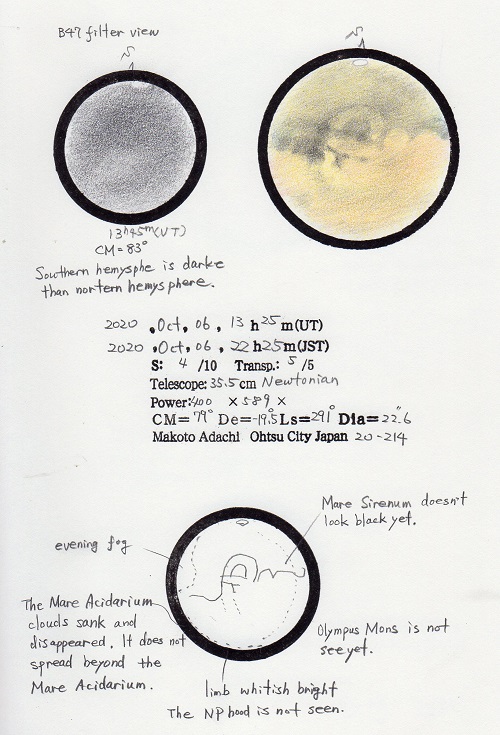 B47 filter view
S
S
13h45m(UT)
CM=83°
Southern hemysphe is darke
than nortern hemysphere.
2020 ,Oct, 06, 13 h 25 m(UT)
2020 ,Oct, 06, 22 h 25 m(JST)
S: 4 /10 Transp.: 5 /5
Telescope: 35.5 cm Newtonian
Power: 400 × 589 ×
CM= 79° De= -19.5° Ls= 291° Dia= 22".6
Makoto Adachi Ohtsu City Japan 20-214
Mare Sirenum doesn't
look black yet.
evening fog
The Mare Acidarium
clouds sank and
disappeared. It does not
spread beyond the
Mare Acidarium.
Olympus Mons is not
see yet.
limb whitish bright
The NP hood is not seen.